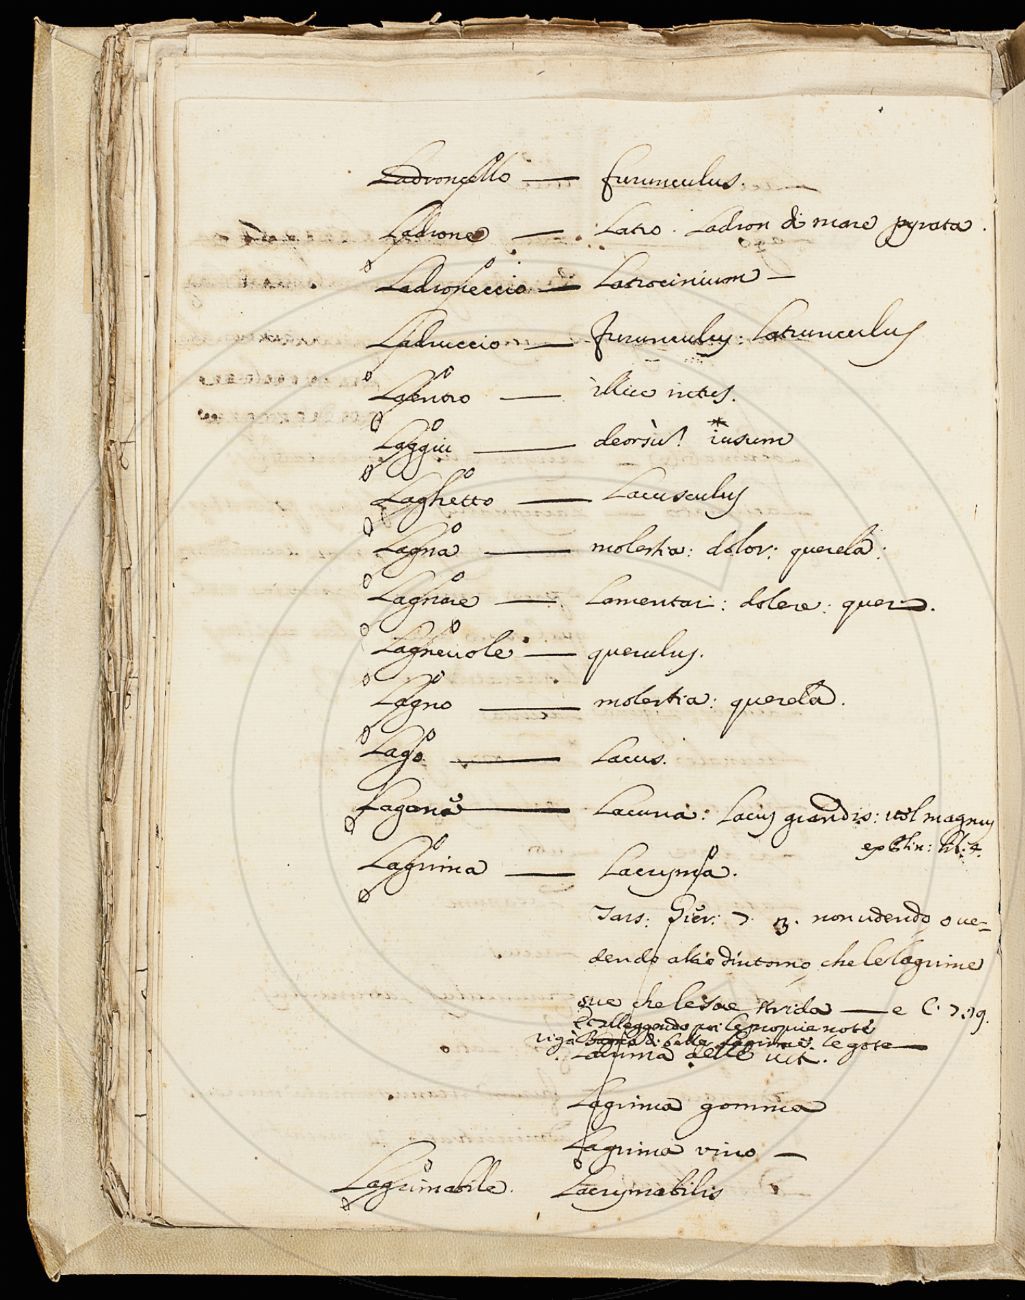 Ladroncello — furunculus.
Ladrone — Latro. Ladron di mare pyrata.
Ladroneccio — Latrocinium —
Ladruccio — furunculus: Latrunculus
Laentro — illic intus.
Laggiu — deorsù! * iusum
Laghetto — Lacusculus
Lagna — molestia: dolor: querela:
Lagnare — Lamentari: dolere: quer.
Lagneuole — querulus.
Lagno — molestia: querela.
Lago — Lacus.
Laguna — Lacuna: Lacus grandis: uel magnus
ex Plin: lib: 4.
Lagrima — Lacryma.
non udendo o ue=
dendo altro d'intorno che le lagrime
sue che le sue strida — e C. 7. 19.
leggendo poi le propie note
riga di belle lagrime le gote —
delle uit.
Lagrima gomma
Lagrima vino —
Lagrimabile. Lacrymabilis